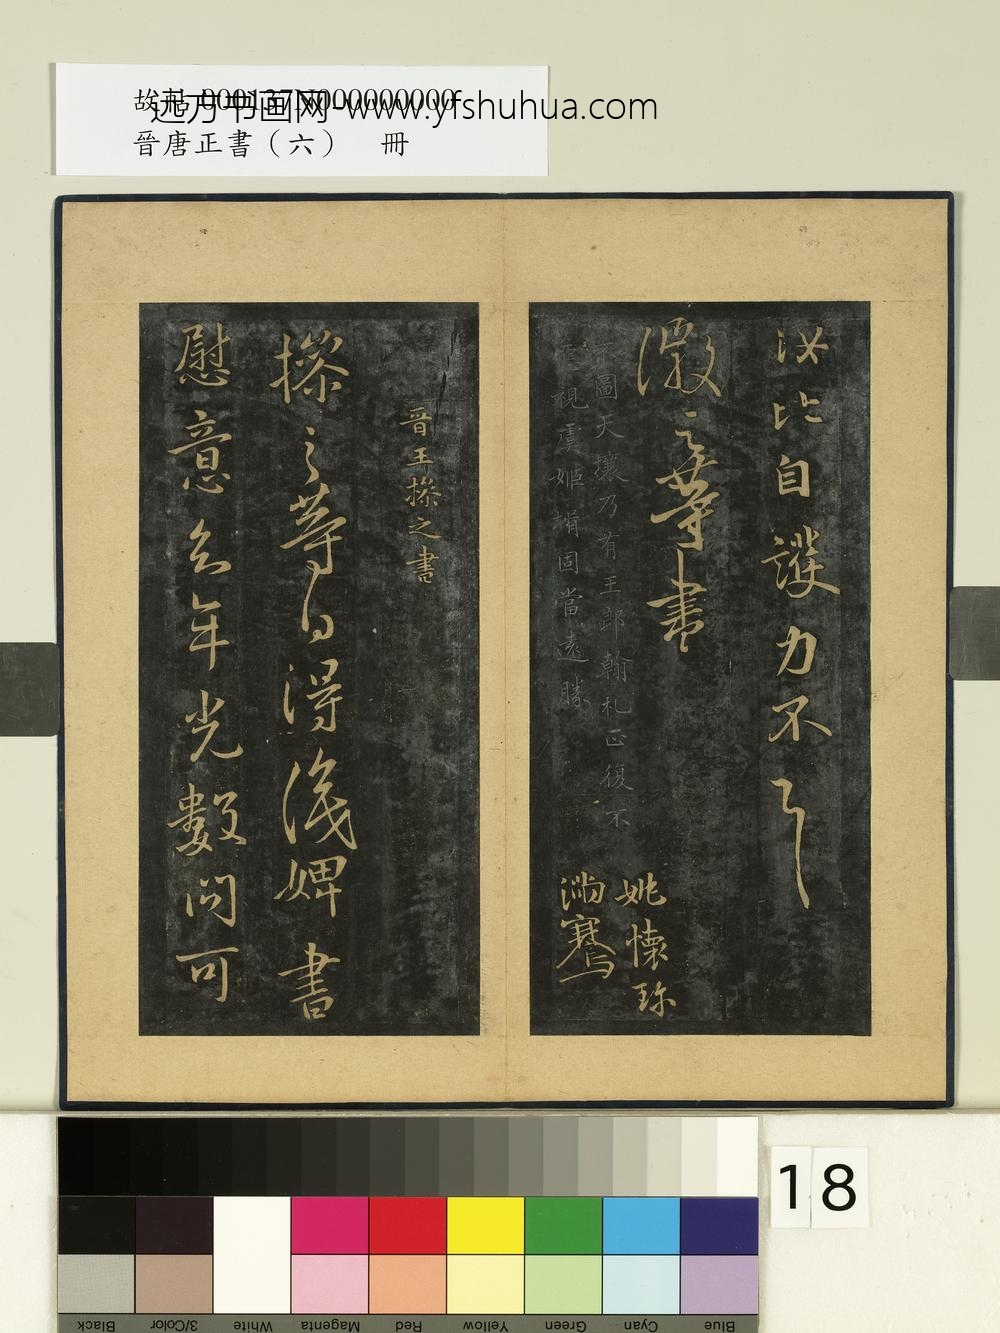 故帖 000137N000000000
远方书画网-www.yfshuhua.com
晉唐正書（六） 冊
汝比自護力不
徽之等書
不圖天攘乃有王郎翰札正復不
視虞姬婿固當遠勝
姚懷珍
滿騫
晉王操之書
操之等白得識婢書
慰意去年光數問可
18
Black
3/Color
White
Magenta
Red
Yellow
Green
Cyan
Blue